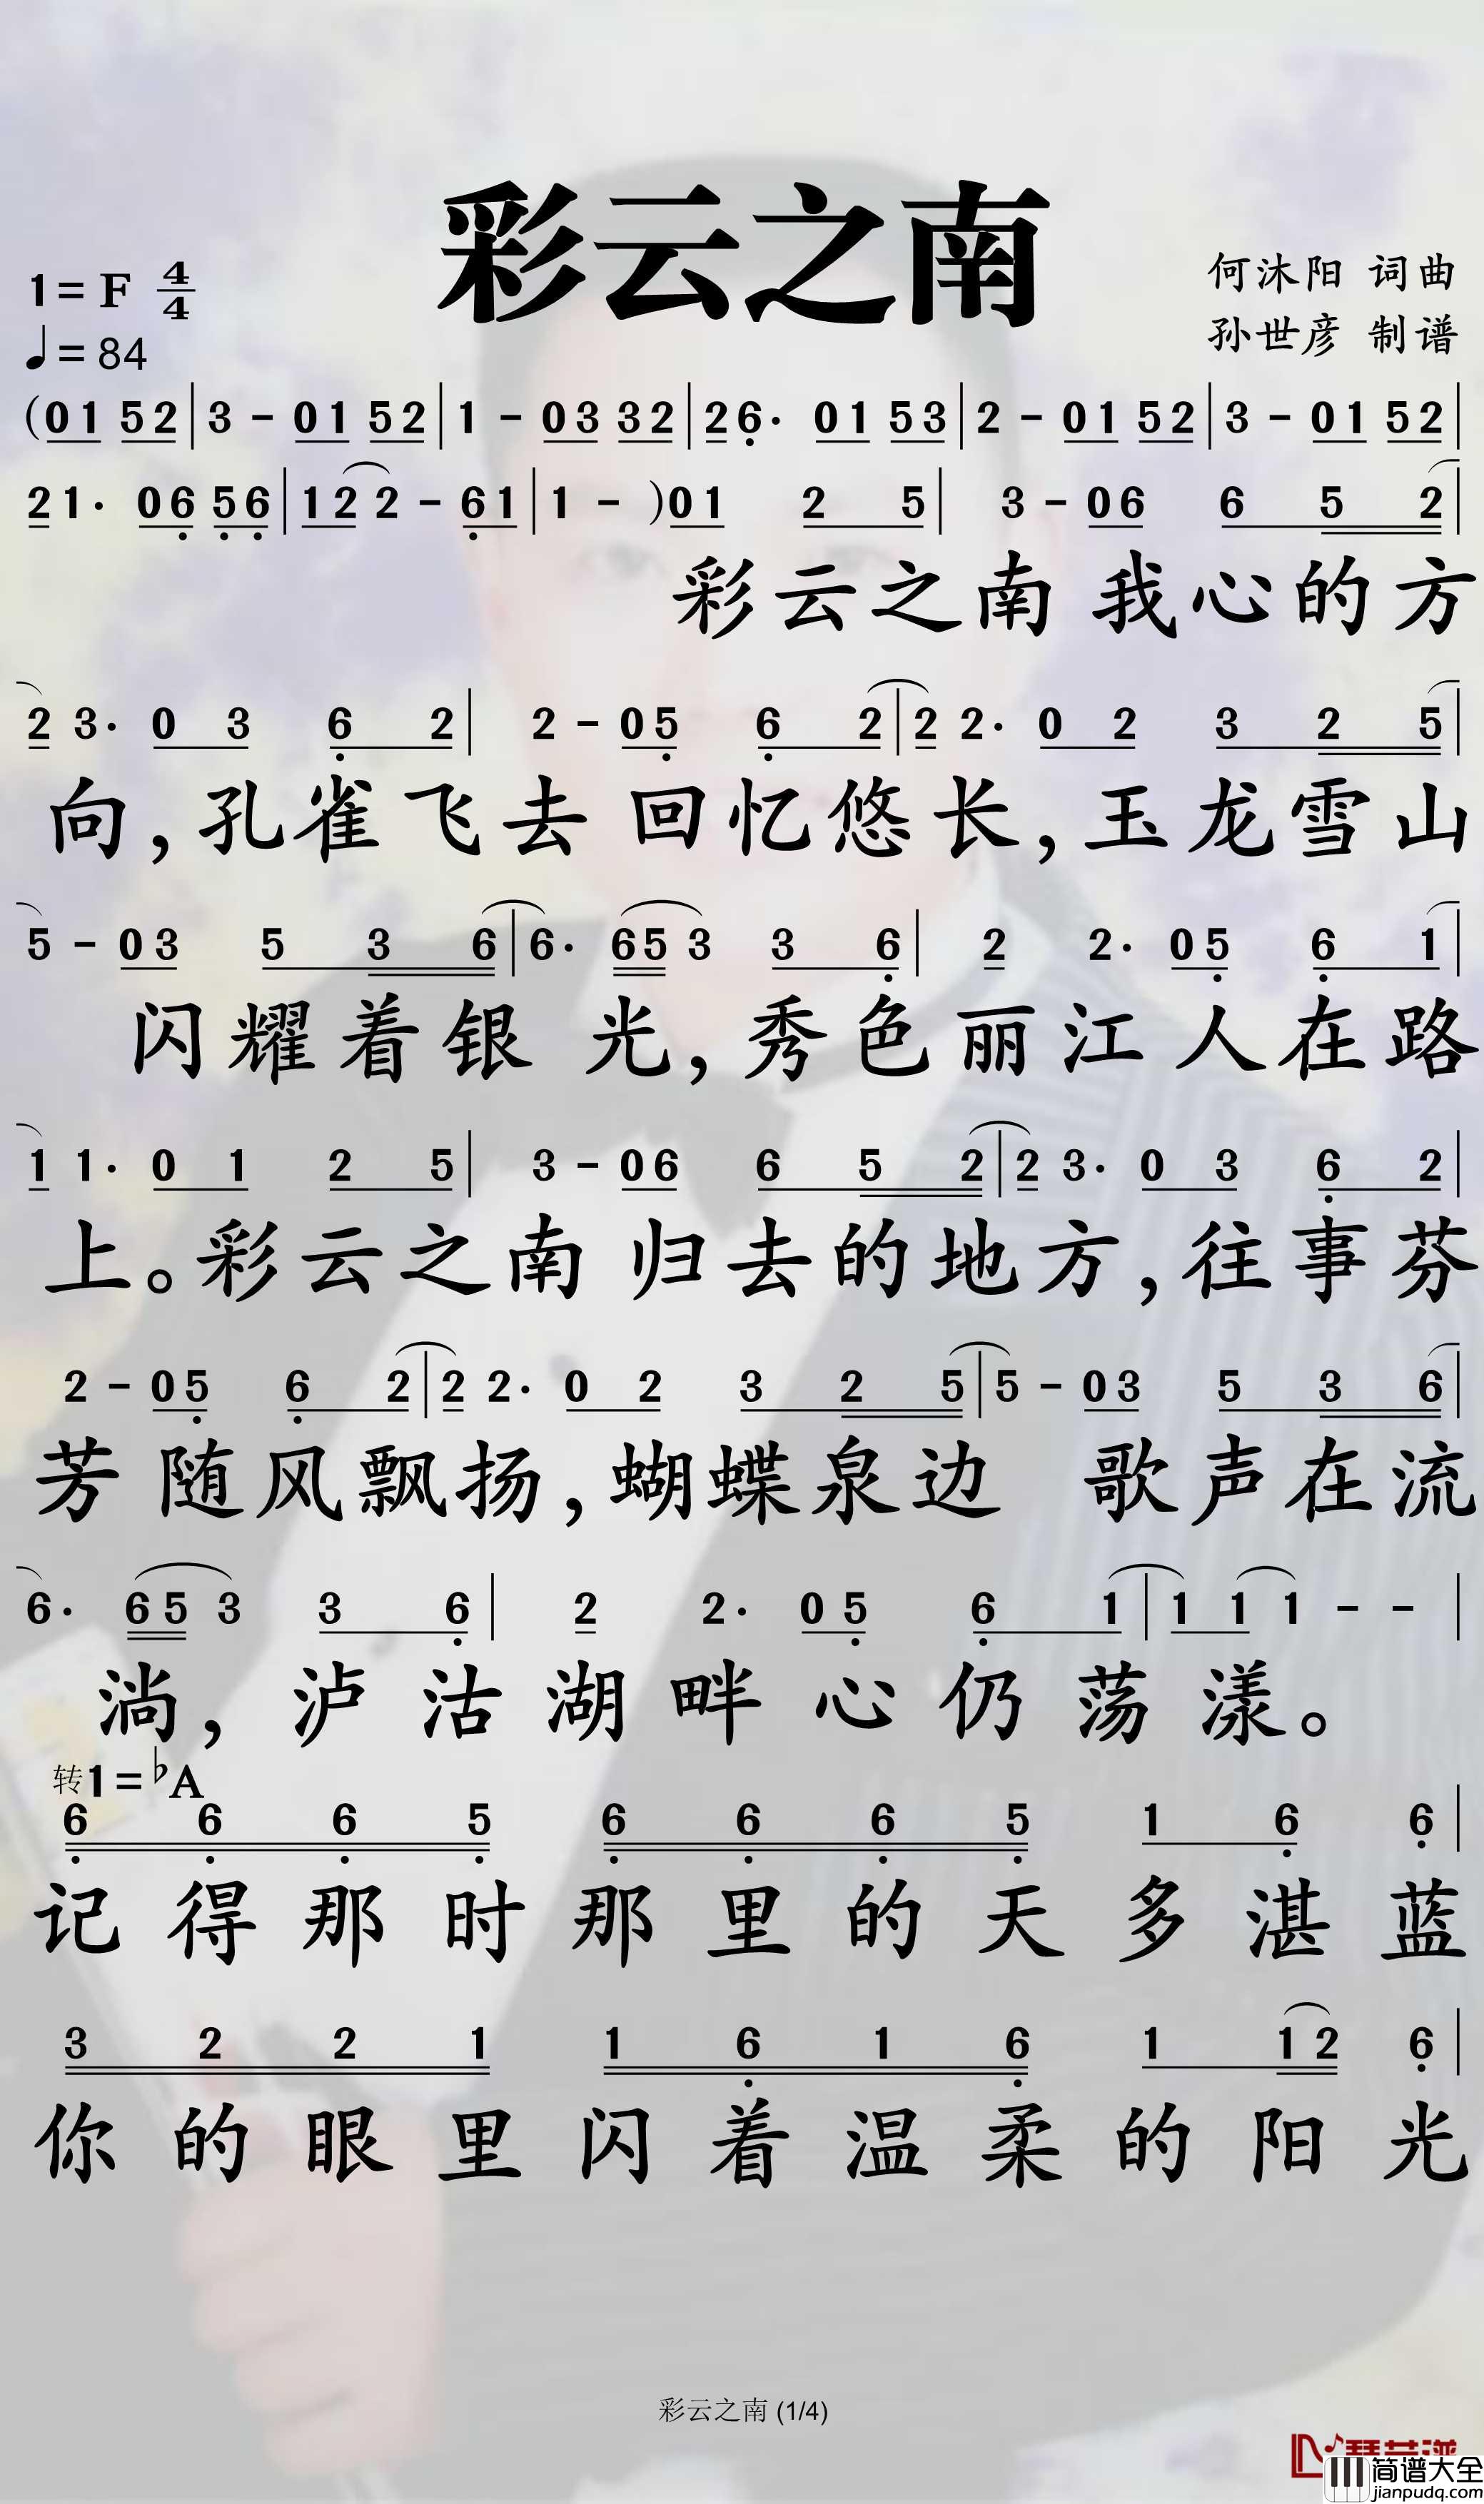 彩云之南
1=F 4/4
何沐阳 词曲
♩=84
孙世彦 制谱
(01 52|3 - 01 52|1 - 03 32|26· 01 53|2 - 01 52|3 - 01 52|
21· 06 56|122 - 61|1 - )01 2 5|3 - 06 6 5 2|
彩云之南 我心的方
2 3· 0 3 6 2|2 - 05 6 2|2 2· 0 2 3 2 5|
向,孔雀飞去 回忆悠长,玉龙雪山
5 - 03 5 3 6|6· 65 3 3 6|2 2· 05 6 1|
闪耀着银 光,秀色丽江人在路
1 1· 0 1 2 5|3 - 06 6 5 2|2 3· 0 3 6 2|
上。彩云之南 归去的地方,往事芬
2 - 05 6 2|2 2· 0 2 3 2 5|5 - 03 5 3 6|
芳 随风飘扬,蝴蝶泉边 歌声在流
6· 65 3 3 6|2 2· 0 5 6 1|1 1 1 - - |
淌,泸沽湖畔心仍荡漾。
转1=♭A
6 6 6 5 6 6 6 5 1 6 6|
记得那时那里的天多湛蓝
3 2 2 1 1 6 1 6 1 12 6|
你的眼里闪着温柔的阳光
彩云之南 (1/4)
简谱大全
jianpudq.com